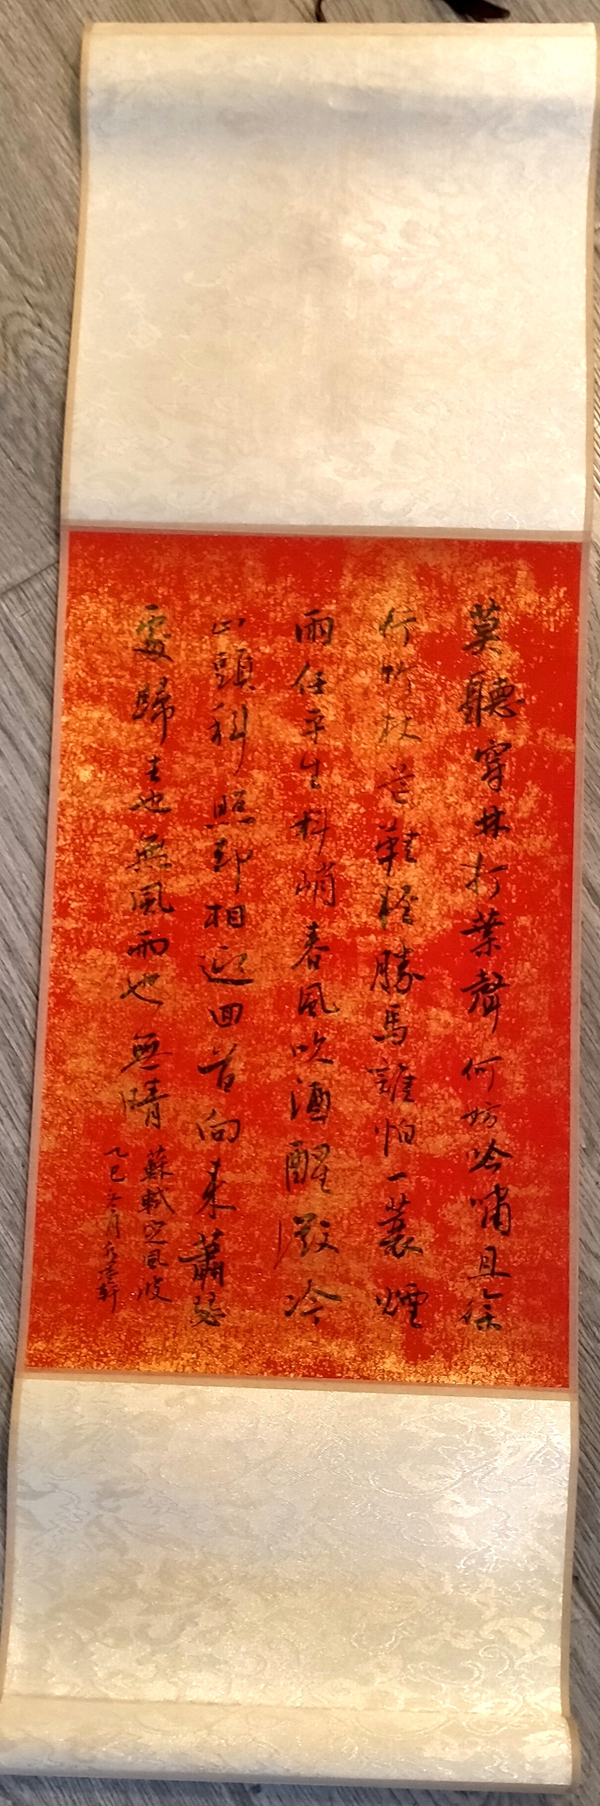 莫聽穿林打葉聲何妨吟嘯且徐
行竹杖芒鞋輕勝馬誰怕一蓑煙
雨任平生料峭春風吹酒醒微冷
山頭斜照却相迎回首向來蕭瑟
處歸去也無風雨也無晴
蘇軾定風波
乙巳 月 軒